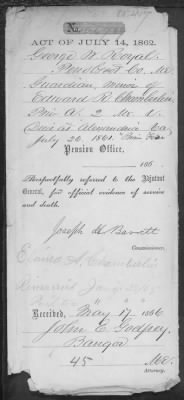 ACT OF JULY 14, 1862.
George W. Royal,
Penobscot Co. Me.
Guardian, minor of
Edward R. Chamberlin
Priv. A. 2 Me. V.
Died at Alexandria Va.
July 20 1861.
Pension Office,
186
Respectfully referred to the Adjutant
General, for official evidence of service
and death.
Joseph H Barrett
Commissioner.
Chamberlin
Received, May 17, 1866
John E Godfrey,
Bangor
45 Me.
Attorney.